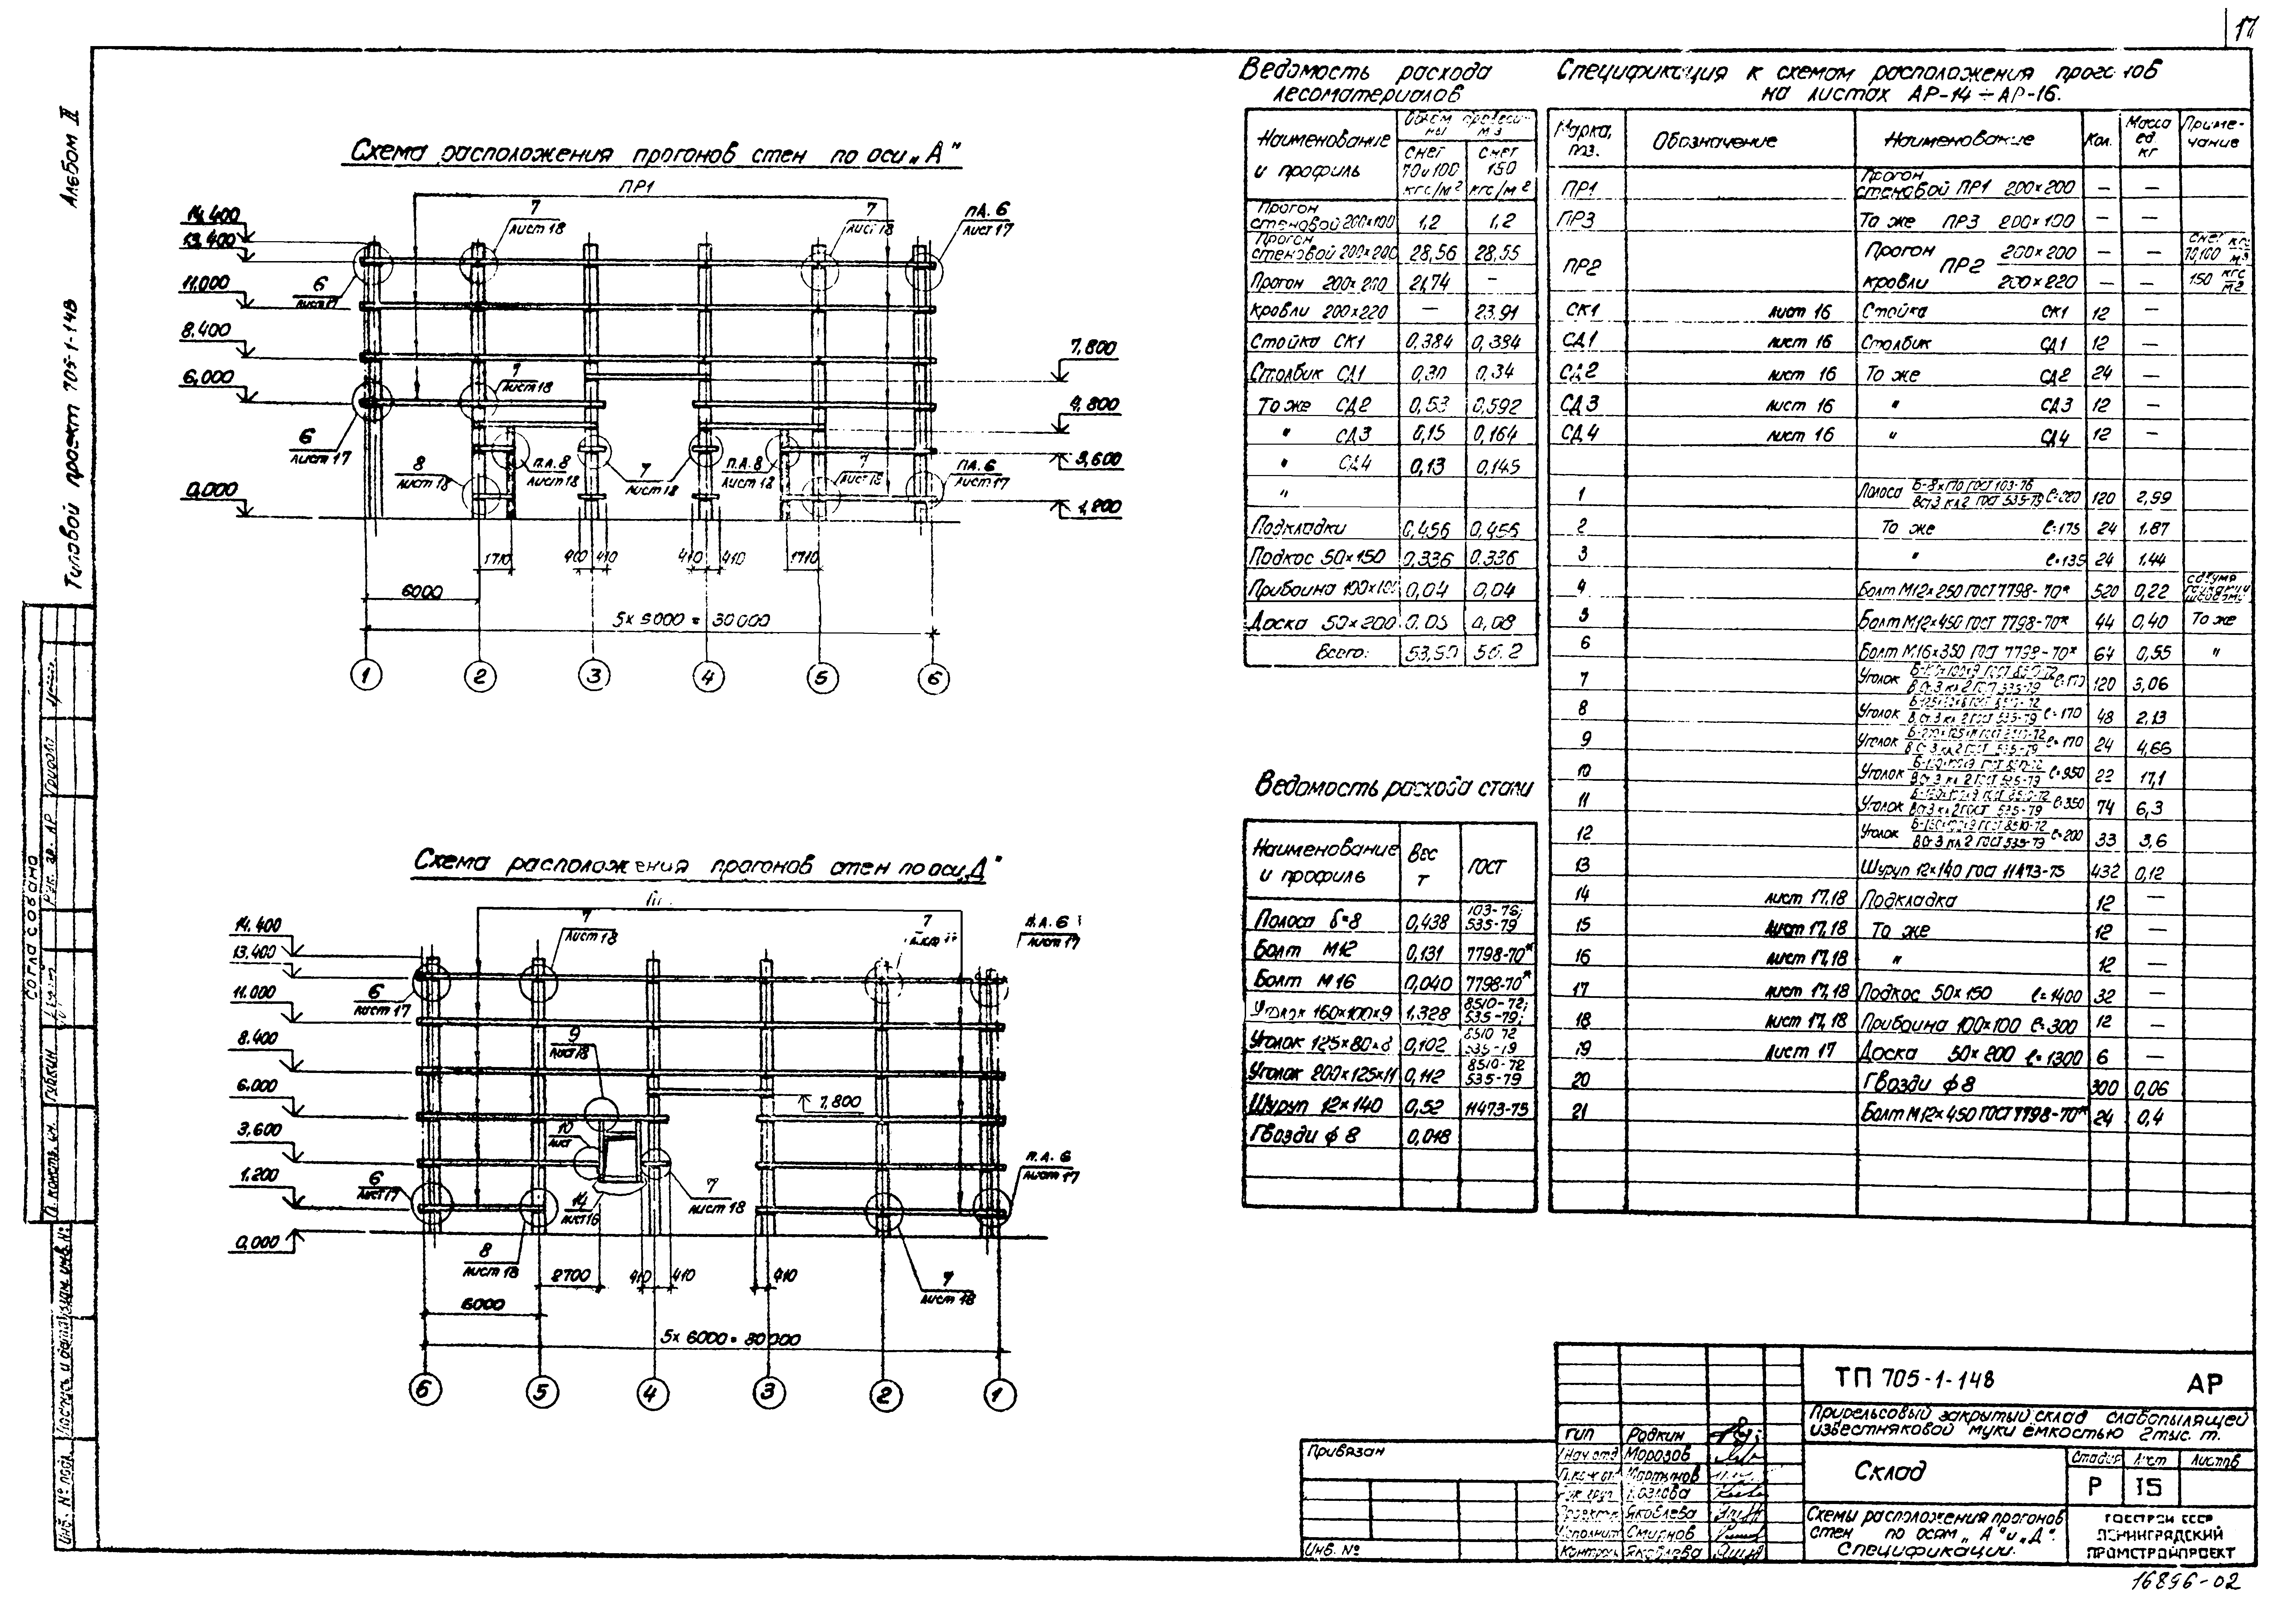 17
Альбом II
Типовой проект 705-1-148
Схема расположения прогонов стен по оси „А"
ПР1
14,400
13,400
11,000
8,400
6,000
0,000
7,800
4,800
3,600
1,200
7
лист 18
7
лист 18
п.А. 6
лист 17
6
лист 17
7
лист 18
6
лист 17
8
лист 18
п.А. 8
лист 18
7
лист 18
п.А. 8
лист 18
7
лист 18
п.А. 6
лист 17
1710
410 410
410 410
1710
6000
5х 6000 = 30000
1 2 3 4 5 6
Схема расположения прогонов стен по оси „Д"
14,400
13,400
11.000
8.400
6.000
3,600
1,200
0,000
7,800
7
лист 18
7
п.А. 6
лист 17
6
лист 17
9
лист 18
10
лист
6
лист 17
14
лист 16
7
лист 18
п.А. 6
лист 17
8
лист 18
7
лист 18
2700
410 410
410
6000
5х 6000 = 30000
6 5 4 3 2 1
Ведомость расхода
лесоматериалов
Наименование и профиль | Объем древесины м3 | Снег 70 и 100 кгс/м2 | Снег 150 кгс/м2
Прогон стеновой 200х100 1,2 1,2
Прогон стеновой 200х200 28,56 28,55
Прогон 200х200 21,74 —
кровли 200х220 — 23.91
Стойка СК1 0,384 0,384
Столбик СД1 0,30 0,34
То же СД2 0,53 0,592
" СД3 0,15 0,164
" СД4 0,13 0,145
"
Подкладки 0,456 0,456
Подкос 50х150 0,336 0.336
Прибоина 100х100 0,04 0,04
Доска 50х200 0,08
Всего:
Ведомость расхода стали
Наименование и профиль | Вес т | ГОСТ
Полоса δ=8 0,438 103-76; 535-79
Болт М12 0,131 7798-70*
Болт М16 0,040 7798-70*
Уголок 160х100х9 1,328 8510-72; 535-79;
Уголок 125х80х8 0,102 8510-72 535-79
Уголок 200х125х11 0,112 8510-72 535-79
Шуруп 12х140 0,52 11473-75
Гвозди ф 8 0,018
Спецификация к схемам расположения прогонов
на листах АР-14 ÷ АР-16.
Марка, поз. | Обозначение | Наименование | Кол. | Масса ед кг | Примечание
ПР1 Прогон стеновой ПР1 200х200 — —
ПР3 То же ПР3 200х100 — —
ПР2 Прогон кровли ПР2 200х200 — — снег 70,100 кгс/м2
200х220 — — 150 кгс/м2
СК1 лист 16 Стойка СК1 12 —
СД1 лист 16 Столбик СД1 12 —
СД2 лист 16 То же СД2 24 —
СД3 лист 16 " СД3 12 —
СД4 лист 16 " СД4 12 —
1 Полоса Б-8х170 ГОСТ 103-76 / ВСт3 кл 2 ГОСТ 535-79 120 2,99
2 То же ℓ=175 24 1,87
3 " ℓ=135 24 1.44
4 Болт М12х250 ГОСТ 7798-70* 520 0,22 с двумя гайками и шайбами
5 Болт М12х450 ГОСТ 7798-70* 44 0,40 То же
6 Болт М16х350 ГОСТ 7798-70* 64 0,55 "
7 Уголок Б-160х100х9 ГОСТ 8510-72 / ВСт3 кл 2 ГОСТ 535-79 ℓ=170 120 3,06
8 Уголок Б-125х80х8 ГОСТ 8510-72 / ВСт3 кл 2 ГОСТ 535-79 ℓ=170 48 2,13
9 Уголок Б-200х125х11 ГОСТ 8510-72 / ВСт3 кл 2 ГОСТ 535-79 ℓ=170 24 4,66
10 Уголок Б-160х100х9 ГОСТ 8510-72 / ВСт3 кл 2 ГОСТ 535-79 ℓ=950 22 17,1
11 Уголок Б-160х100х9 ГОСТ 8510-72 / ВСт3 кл 2 ГОСТ 535-79 ℓ=350 74 6,3
12 Уголок Б-160х100х9 ГОСТ 8510-72 / ВСт3 кл 2 ГОСТ 535-79 ℓ=200 33 3,6
13 Шуруп 12х140 ГОСТ 11473-75 432 0,12
14 лист 17,18 Подкладка 12 —
15 лист 17,18 То же 12 —
16 лист 17,18 " 12 —
17 лист 17,18 Подкос 50х150 ℓ=1400 32 —
18 лист 17,18 Прибоина 100х100 ℓ=300 12 —
19 лист 17 Доска 50х200 ℓ=1300 6 —
20 Гвозди ф8 300 0,06
21 Болт М12х450 ГОСТ 7798-70* 24 0,4
Согласовано
Рук. гр. АР
Гл. констр. от.
Губкин
Инв. № подл. Подпись и дата Взам. инв. №
Привязан
Инв. №
ГИП Радкин
Нач. отд Морозов
Мартынов
Рук. груп Козлова
Проектн. Яковлева
Исполнит Смирнов
Контроль Яковлева
ТП 705-1-148 АР
Прирельсовый закрытый склад слабопылящей
известняковой муки ёмкостью 2 тыс. т.
Склад
Стадия Лист Листов
Р 15
Схемы расположения прогонов
стен по осям „А" и „Д".
Спецификации.
ГОССТРОЙ СССР
ЛЕНИНГРАДСКИЙ
ПРОМСТРОЙПРОЕКТ
16896-02